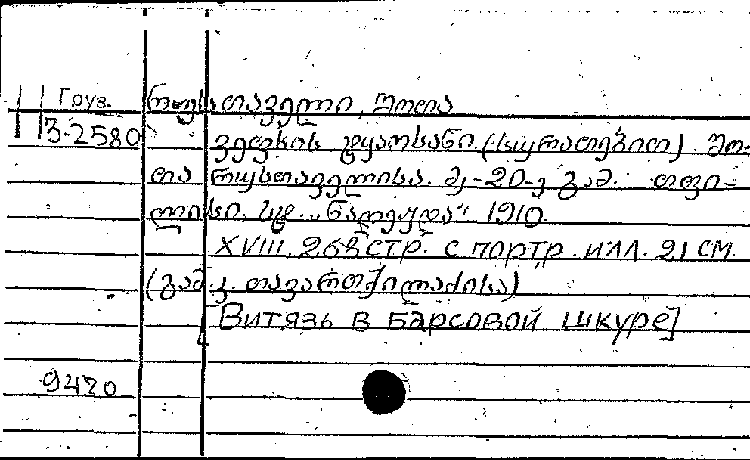 Груз. რუსთაველი, შოთა
3-2580 ვეფხის ტყაოსანი (სურათებით). შო-
თა რუსთაველისა. მე-20-ე გამ. თფი-
ლისი, სტ. „ნადეჟდა“ 1910.
XVIII, 268 стр. с портр. илл. 21 см.
(გამ. კ. თავართქილაძისა)
[Витязь в барсовой шкуре]
9420